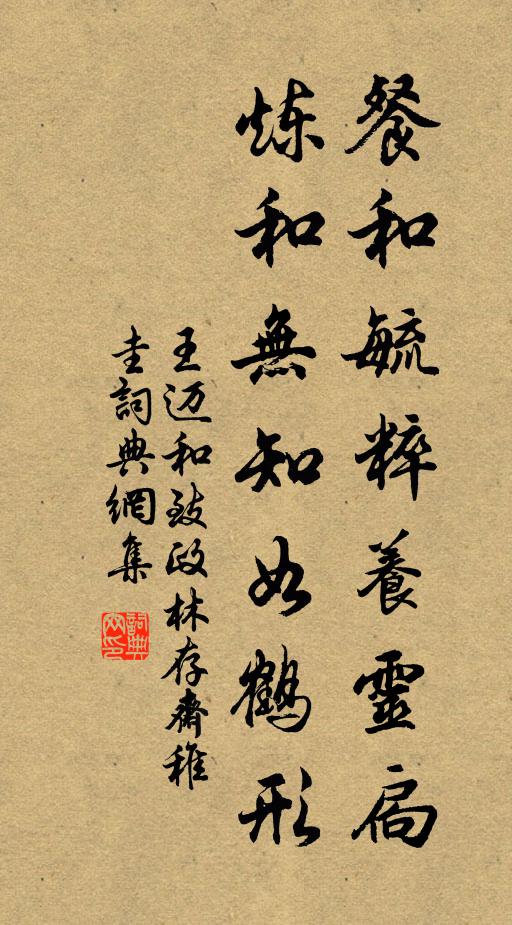 餐和毓粹養靈扃
炼和無知如鶴形
王迈和致政林存齋稚
圭詞典網集
詞典网印